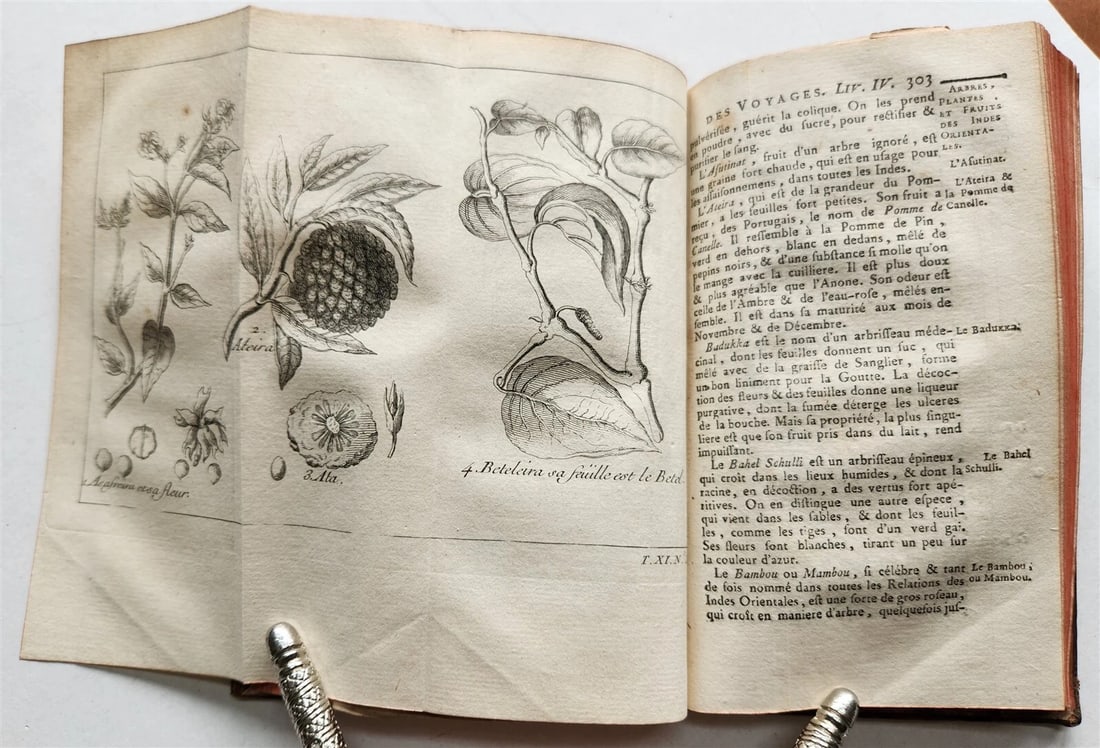 2.
Ateira
3. Ata.
et sa fleur.
4. Beteleira sa feüille est le Betel
T. XI. N
DES VOYAGES. LIV. IV. 303
ARBRES,
PLANTES
ET FRUITS
DES INDES
ORIENTA-
LES.
pulvérisée, guérit la colique. On les prend
en poudre, avec du sucre, pour rectifier &
purifier le sang.
L'Asutinat, fruit d'un arbre ignoré, est
une graine fort chaude, qui est en usage pour
les assaisonnemens, dans toutes les Indes.
L'Asutinat.
L'Ateira, qui est de la grandeur du Pom-
mier, a les feuilles fort petites. Son fruit a
reçu, des Portugais, le nom de Pomme de
Canelle. Il ressemble à la Pomme de Pin,
verd en dehors, blanc en dedans, mêlé de
pepins noirs, & d'une substance si molle qu'on
le mange avec la cuilliere. Il est plus doux
& plus agréable que l'Anone. Son odeur est
celle de l'Ambre & de l'eau-rose, mêlés en-
semble. Il est dans sa maturité aux mois de
Novembre & de Décembre.
L'Ateira &
la Pomme de
Canelle.
Badukka est le nom d'un arbrisseau méde-
cinal, dont les feuilles donnent un suc, qui
mêlé avec de la graisse de Sanglier, forme
un bon liniment pour la Goutte. La décoc-
tion des fleurs & des feuilles donne une liqueur
purgative, dont la fumée déterge les ulceres
de la bouche. Mais sa propriété, la plus singu-
liere est que son fruit pris dans du lait, rend
impuissant.
Le Badukka.
Le Bahel Schulli est un arbrisseau épineux,
qui croit dans les lieux humides, & dont la
racine, en décoction, a des vertus fort apé-
ritives. On en distingue une autre espece,
qui vient dans les sables, & dont les feuil-
les, comme les tiges, sont d'un verd gai.
Ses fleurs sont blanches, tirant un peu sur
la couleur d'azur.
Le Bahel
Schulli.
Le Bambou ou Mambou, si célébre & tant
de fois nommé dans toutes les Relations des
Indes Orientales, est une sorte de gros roseau,
qui croît en maniere d'arbre, quelquefois jus-
Le Bambou,
ou Mambou.